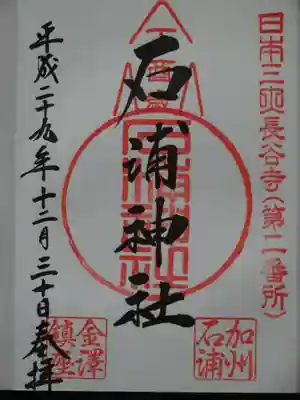 日本三大長谷寺(第二番所)
石浦神社
平成二十九年十二月三十日奉拝
加州
石浦
金澤
鎮座